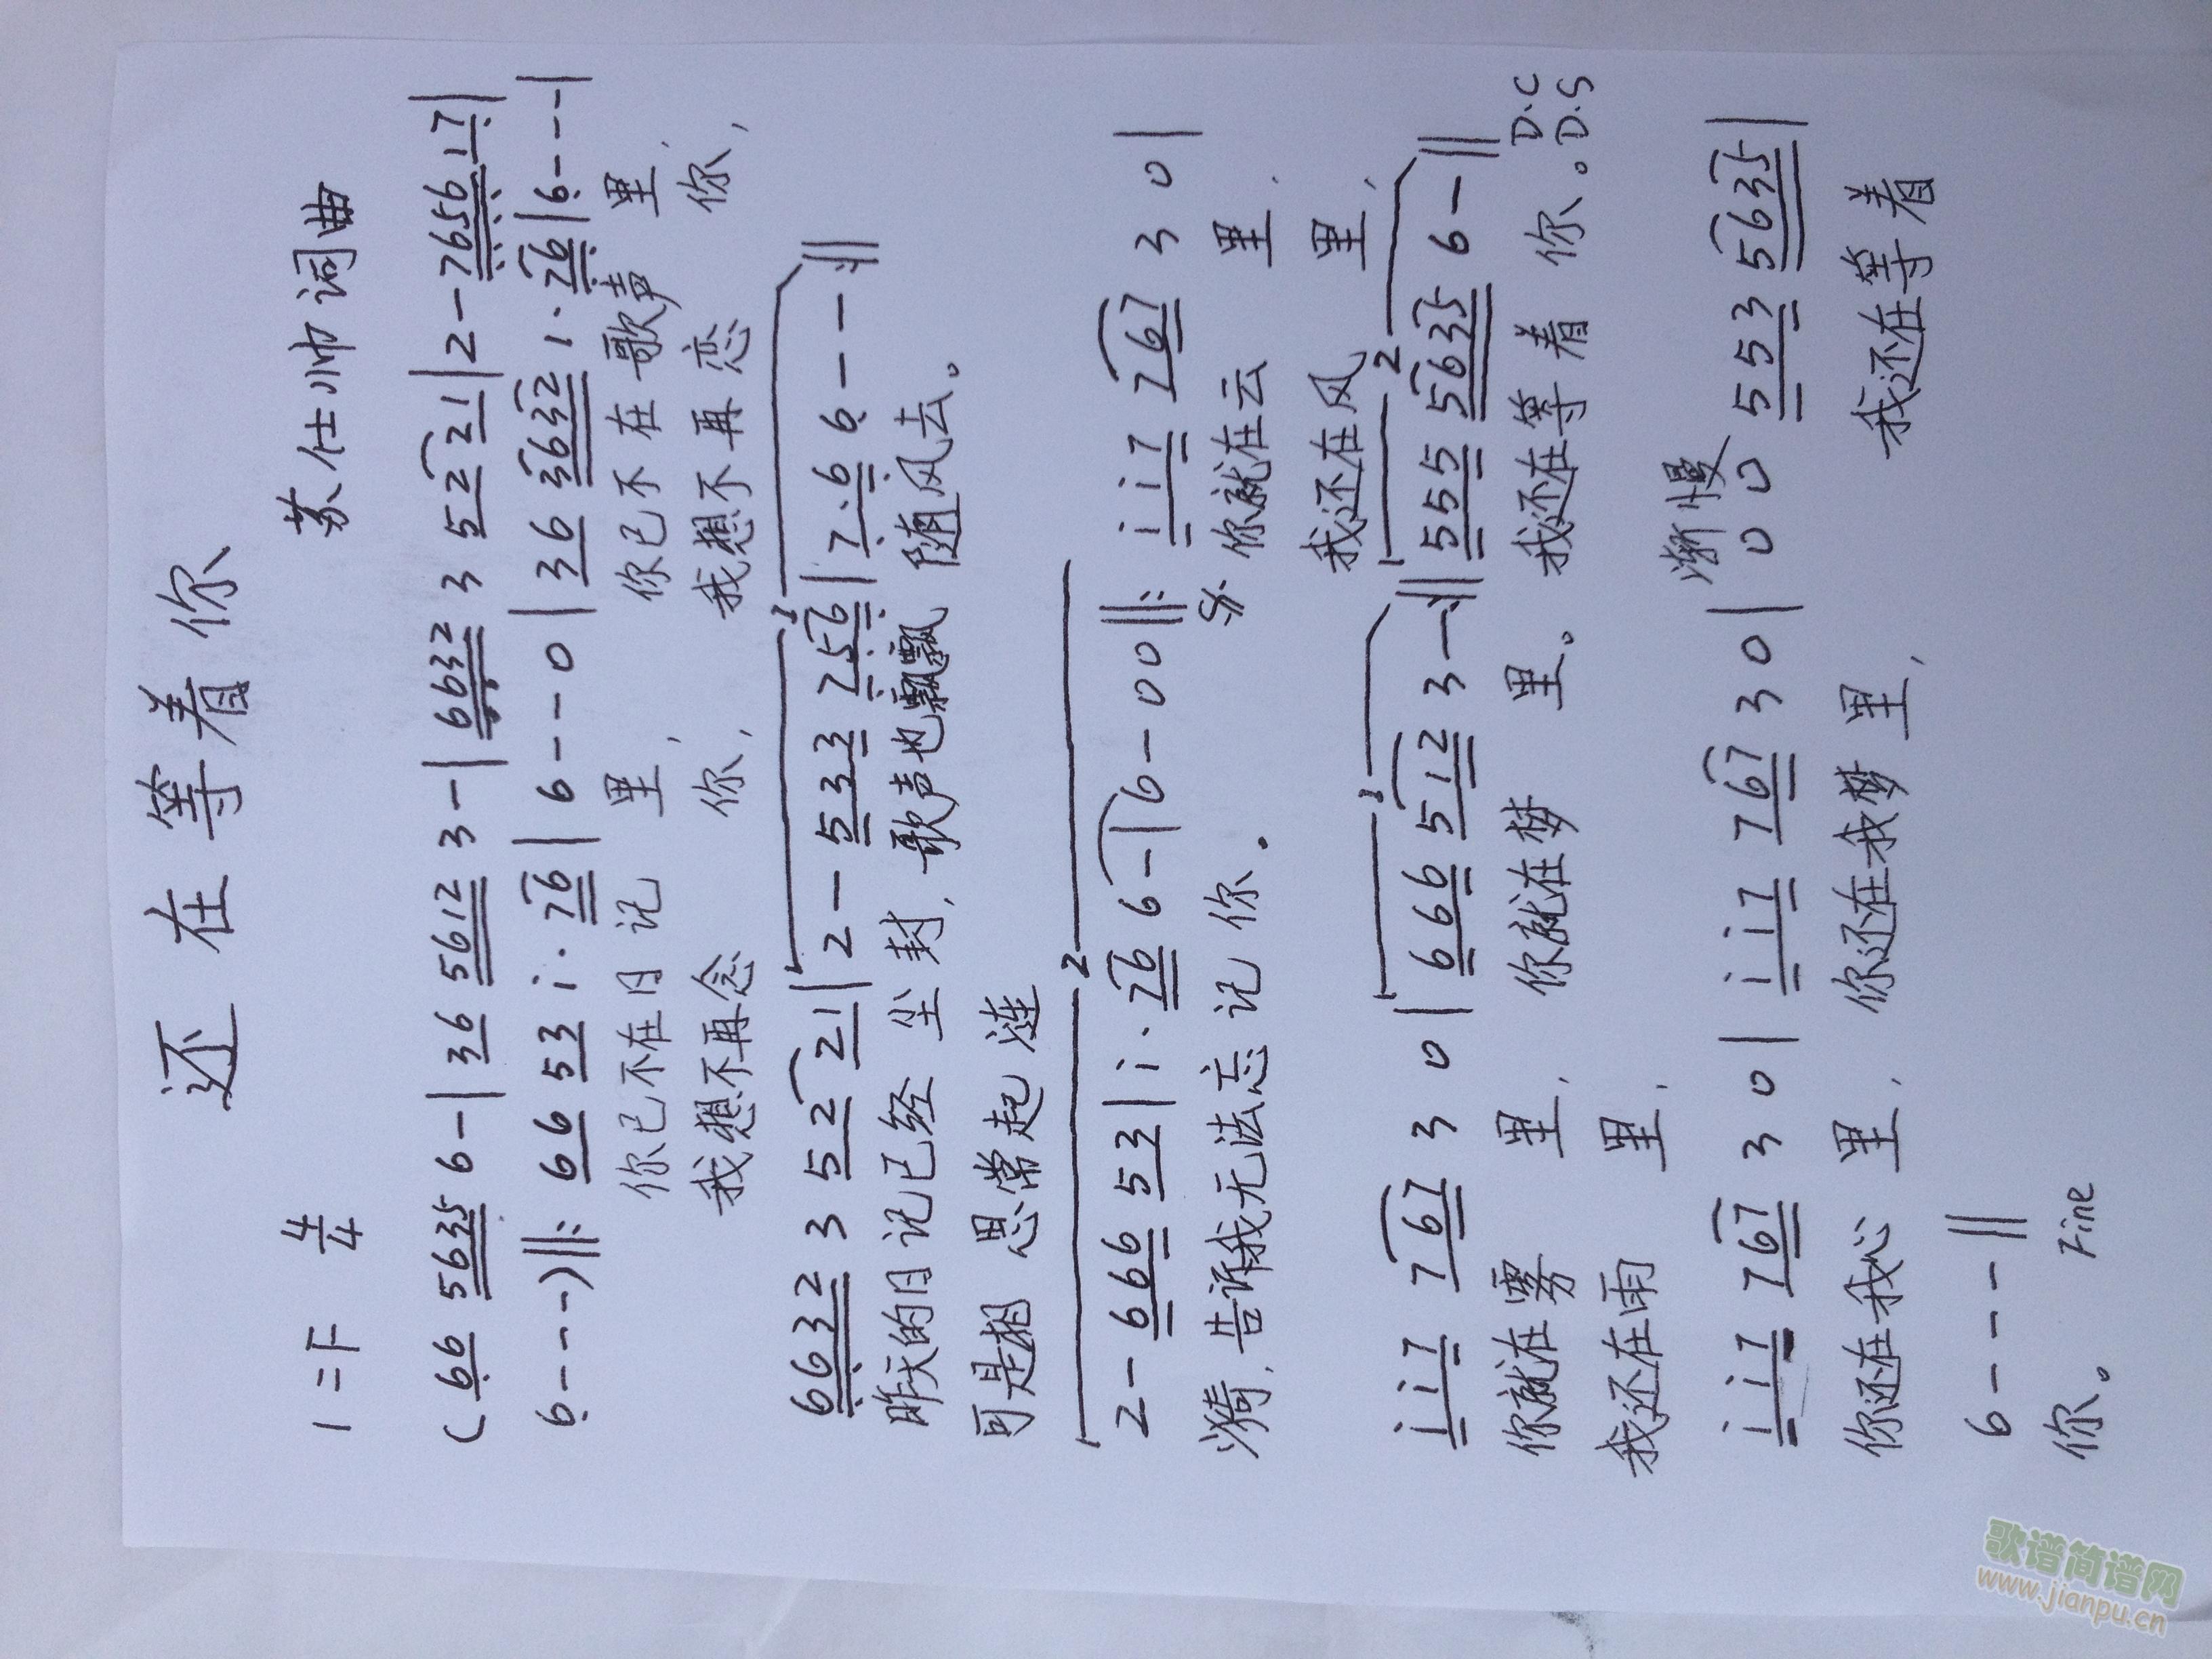 还在等着你
1=F 4/4 苏仕帅词曲
(66 5635 6-|36 5612 3-|6632 3 52 21|2-7656 17|
6---)‖: 66 53 i·76|6--0|36 3632 1·76|6---|
你已不在日记里, 你已不在歌声里,
我想不再念你, 我想不再恋你,
6632 3 52 21|2-533 256|7·6 6--:‖
昨天的日记已经尘封, 歌声也飘飘随风去。
可是相思常起涟
2-666 53|i·76 6-|6-00‖: ii7 767 3 0|
漪, 告诉我无法忘记你. 你就在云里.
我还在风里,
ii7 767 3 0|666 512 3-:‖555 5635 6-‖
你就在雾里. 你就在梦里。 我还在等着你。 D.C
我还在雨里. D.S
渐慢
ii7 767 3 0|ii7 767 3 0|0 0 553 5635|
你还在我心里. 你还在我梦里, 我还在等着
6---‖
你。 Fine
歌谱简谱网
www.jianpu.cn